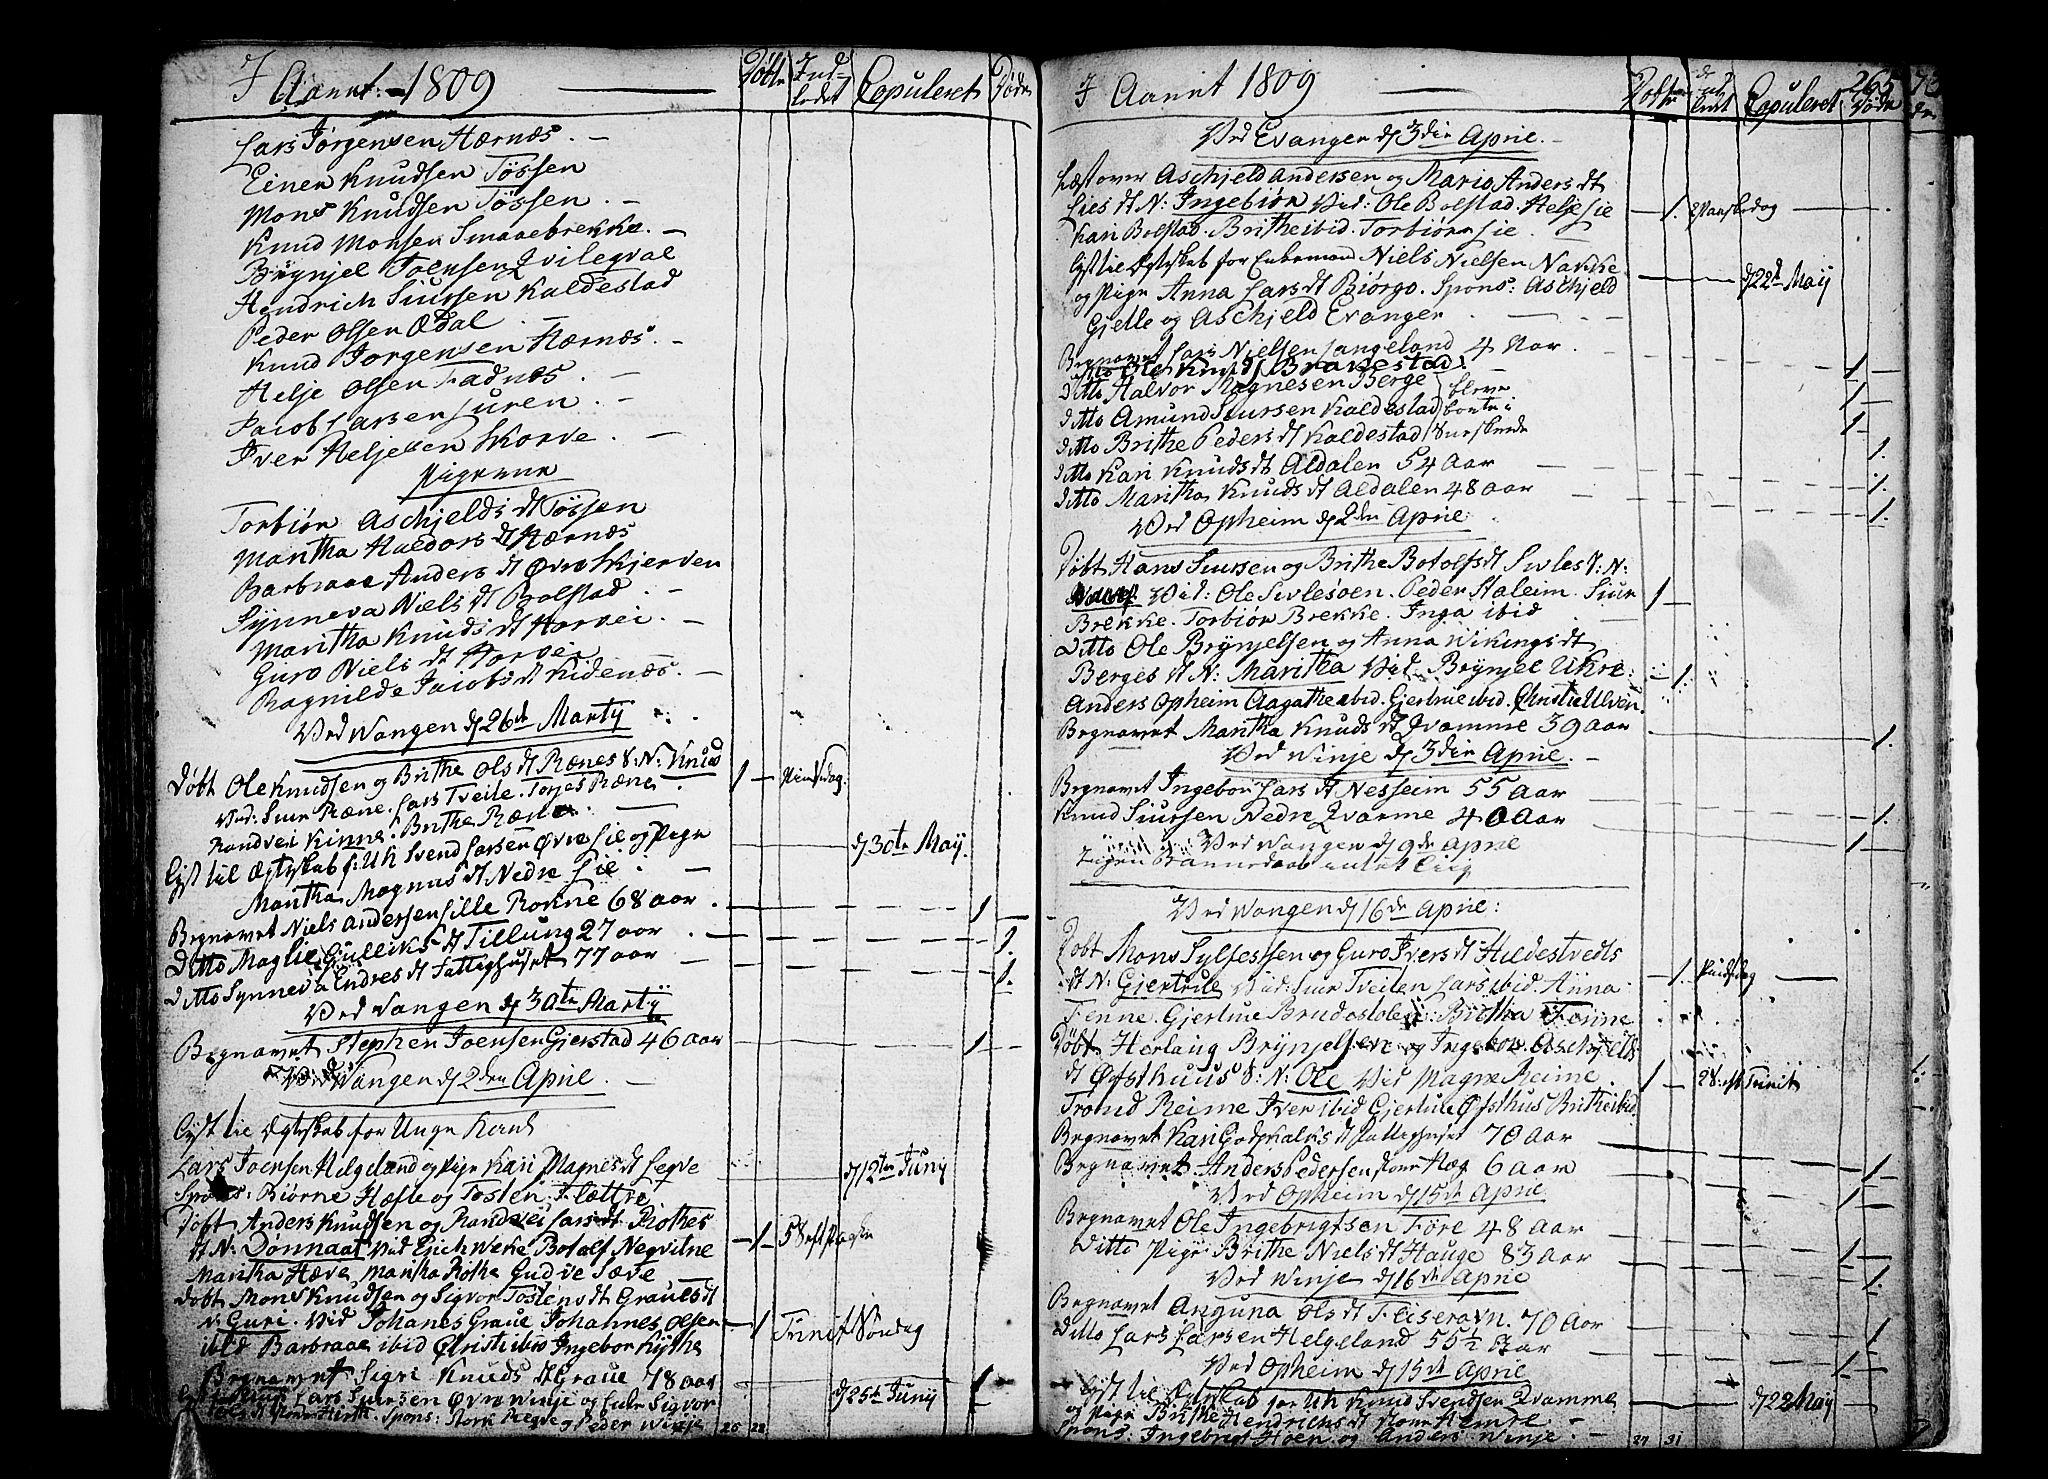 I Aaret 1809
Døbte
Copuleret
Døde
Lars Jørgensen Hærnæs
Einer Knudsen Tøssen
Mons Knudsen Tøssen
Knud Monsen Smaaebrekke
Brynjel Joensen Qvilegval
Hendrich Siursen Kaldestad
Peder Olsen Ødal
Knud Jørgensen Hærnæs
Helje Olsen Fadnæs
Jacob Larsen Luren
Iver Heljesen Skorve
Pigerne
Torbiør Aschjelds dt Tøssen
Maritha Haldors dt Hærnæs
Barbraae Anders dt Øvre Skjerven
Synneva Niels dt Bolstad
Maritha Knuds dt Horvei
Guro Niels dt Horvei
Ragnilde Jacobs dt Kidenæs
Ved Wangen d 26de Martij
Døbt Ole Knudsen og Brithe Ols dt Rænes S: N: Knud
Vid: Siur Ræne. Lars Tveite. Torjes Ræne
Randvei Kinne. Brithe Ræne
1 Pindsdag
Lyst til Ægteskab f: UK Svend Larsen Øvre Lie og Pige
Maritha Magnus dt Nedre Lie
d 30te Maij
Begravet Niels Andersen Lille Rokne 68 aar
1
Ditto Maglie Gulliks dt Tillung 27 aar
1.
Ditto Synneva Endres dt Fattighuset 77 aar
1.
Ved Vangen d 30te Martij
Begravet Stephen Joensen Gjerstad 46 aar
1
Ved Wangen d 2den April
Lyst til Ægteskab for Unge Karl
Lars Joensen Helgeland og Pige Kari Magnes dt Segve
d 12te Junij
Spons: Biørne Hæfte og Tosten Flættre
Døbt Anders Knudsen og Randvei Lars dt Rothes
dt N: Dønnaat Vid Erich Weke Botolf Negvilne
1 5 S eft Paaske
Maritha Hæve Maritha Rothe Gudve Sæve
Døbt Mons Knudsen og Sigvor Tostens dt Graues dt
N: Guri. Vid Johanes Graue Johannes Olsen
1 Trinit Søndag
ibid Barbraae ibid Christi ibid Ingebor Kythe
Begravet Sigri Knuds dt Graue 78 aar
1
Lars Siursen Øvre Winje og Enke Sigvor
d 25de Junij
Spons: Peder Winje
26 22
I Aaret 1809
Døbte
Copuleret
265
Døde
Ved Evanger d 3die April
Læst over Aschjeld Andersen og Mario Anders dt
Lies dt N: Ingebiør Vid: Ole Bolstad. Helje Lie
1.
Kari Bolstad. Brithe ibid. Torbiør Lie
Lyst til Ægteskab for Enkemand Niels Nielsen Nakke
og Pige Anna Lars dt Biørgo. Spons: Aschjeld
d 22de Maij
Gjelle og Aschjeld Evanger
Begravet Lars Nielsen Langeland 4 Aar
1
Ditto Halvor Magnesen Berge
1
Ditto Amund Siursen Kaldestad
1
Ditto Brithe Peders dt Kaldestad
1.
Ditto Kari Knuds dt Aldalen 54 Aar
1.
Ditto Maritha Knuds dt Aldalen 48 aar
1.
Ved Opheim d 2den April
Døbt Hans Siursen og Brithe Botolfs dt Sivles S: N:
Vid: Ole Sivlesøen. Peder Staleim. Siur
1
Brekke. Torbiør Brekke. Inga ibid
Ditto Ole Brynjelsen og Anna Wikings dt
Berges dt N: Maritha Vid. Brynjel Ukre
1.
Anders Opheim Aagathe ibid. Gjertrue ibid. Christie Ulven
Begravet Maritha Knuds dt Qvamme 39 aar
1.
Ved Winje d 3die April
Begravet Ingebor Lars dt Nesseim 55 aar
1.
Knud Siursen Nedre Qvarme 40 Aar
1.
Ved Wangen d 9de April
Ved Wangen d 16de April:
Døbt Mons Sylfestsen og Guro Ivers dt Hildestvedts
dt N: Gjertrue Vid: Siur Tveiten Lars ibid. Anna
1. Pindsdag
Fenne. Gjertrue Brudestolen Brithe Fenne
Døbt Herlaug Brynjelsen og Ingebor Aschjelds
dt Øfsthuus S: N: Ole Vid Magne Reime
1 28: eft Trinit
Trond Reime Iver ibid Gjertrue Øfsthus Brithe ibid
Begravet Kari Godskalks dt Fattighuset 70 Aar
1.
Begravet Anders Pedersen store Hæg 6 aar
1
Ved Opheim d 15de April
Begravet Ole Ingebrigtsen Føre 48 aar
1
Ditto Pige Brithe Niels dt Hauge 83 aar
1.
Ved Winje d 16de April
Begravet Anguna Ols dt Fleiseravn. 70 Aar
1.
Ditto Lars Larsen Helgeland 55½ Aar
1
Ved Opheim d 15de April
Lyst til Ægteskab for UK Knud Svendsen Qvamme
d 22 Maij
og Pige Brithe Hendrichs dt
Spons: Ingebrigt Høen og Anders Winje
27 31